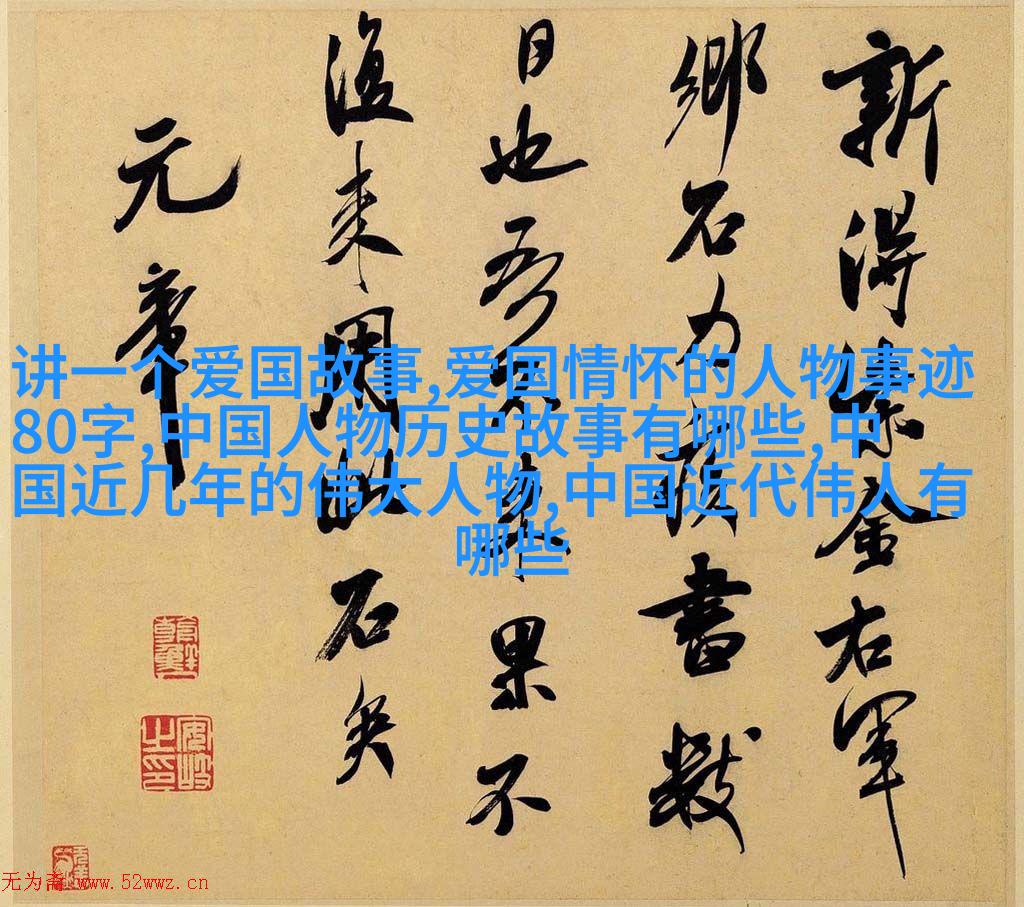 新得紫金右軍
鄉石力疾書數
日也吾不来果不
復来用此石矣
元章
讲一个爱国故事,爱国情怀的人物事迹
80字,中国人物历史故事有哪些,中
国近几年的伟大人物,中国近代伟人有
哪些
无为斋 www.52wwz.cn